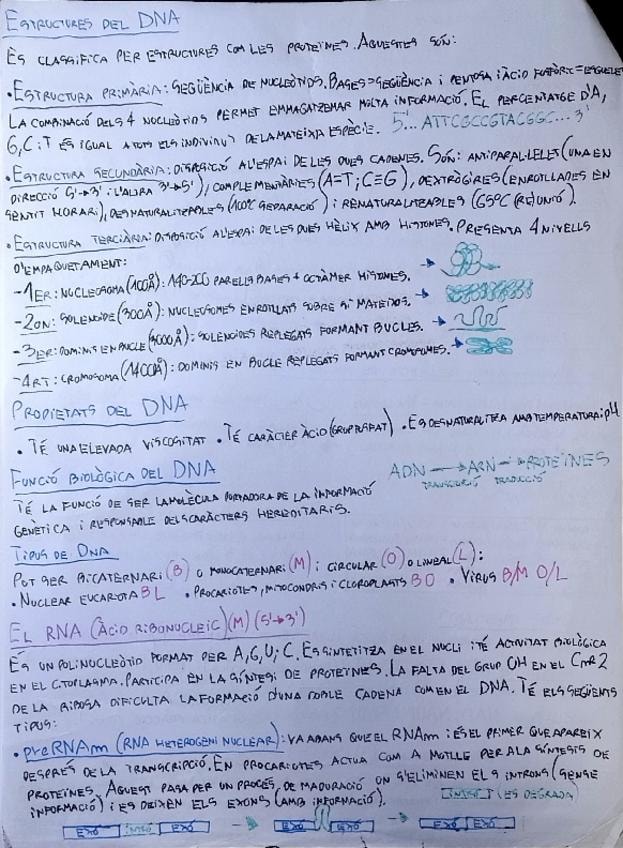 ESTRUCTURES DEL DNA
ES CLASSIFICA PER ESTRUCTURES COM LES PROTEÏNES. AQUESTES SÓN:
• ESTRUCTURA PRIMÀRIA: SEQÜÈNCIA DE NUCLEÒTIDS. BASES=SEQÜÈNCIA i PENTOSA i ÀCID FOSFÒRIC=ESQUELET
LA COMBINACIÓ DELS 4 NUCLEÒTIDS PERMET EMMAGATZEMAR MOLTA INFORMACIÓ. EL PERCENTATGE D'A,
G, C i T ÉS IGUAL A TOTS ELS INDIVIDUS DE LA MATEIXA ESPÈCIE. 5'... ATTCGCCGTACGGC... 3'
• ESTRUCTURA SECUNDÀRIA: DISPOSICIÓ A L'ESPAI DE LES DUES CADENES. SÓN: ANTIPARAL·LELES (UNA EN
DIRECCIÓ 5'→3' i L'ALTRA 3'→5'), COMPLEMENTÀRIES (A=T; C≡G), DEXTRÒGIRES (ENROTLLADES EN
SENTIT HORARI), DESNATURALITZABLES (100ºC SEPARACIÓ) i RENATURALITZABLES (65ºC (RE)UNIÓ).
• ESTRUCTURA TERCIÀRIA: DISPOSICIÓ A L'ESPAI DE LES DUES HÈLIX AMB HISTONES. PRESENTA 4 NIVELLS
D'EMPAQUETAMENT:
- 1ER: NUCLEOSOMA (100Å): 140-200 PARELLS BASES + OCTÀMER HISTONES.
- 2ON: SOLENOIDE (300Å): NUCLEOSOMES ENROTLLATS SOBRE SI MATEIXOS.
- 3ER: DOMINIS EN BUCLE (3000Å): SOLENOIDES REPLEGATS FORMANT BUCLES.
- 4RT: CROMOSOMA (14000Å): DOMINIS EN BUCLE REPLEGATS FORMANT CROMOSOMES.
PROPIETATS DEL DNA
• TÉ UNA ELEVADA VISCOSITAT • TÉ CARÀCTER ÀCID (GRUP FOSFAT) • ES DESNATURALITZA AMB TEMPERATURA i pH
FUNCIÓ BIOLÒGICA DEL DNA
ADN → ARN → PROTEÏNES
TRANSCRIPCIÓ TRADUCCIÓ
TÉ LA FUNCIÓ DE SER LA MOLÈCULA PORTADORA DE LA INFORMACIÓ
GENÈTICA i RESPONSABLE DELS CARÀCTERS HEREDITARIS.
TIPUS DE DNA
POT SER BICATENARI (B) O MONOCATENARI (M) i CIRCULAR (O) O LINEAL (L):
• NUCLEAR EUCARIOTA B L • PROCARIOTES, MITOCONDRIS i CLOROPLASTS B O • VIRUS B/M O/L
EL RNA (ÀCID RIBONUCLEIC) (M) (5'→3')
ÉS UN POLINUCLEÒTID FORMAT PER A, G, U i C. ES SINTETITZA EN EL NUCLI i TÉ ACTIVITAT BIOLÒGICA
EN EL CITOPLASMA. PARTICIPA EN LA SÍNTESI DE PROTEÏNES. LA FALTA DEL GRUP OH EN EL
DE LA RIBOSA DIFICULTA LA FORMACIÓ D'UNA DOBLE CADENA COM EN EL DNA. TÉ ELS SEGÜENTS
TIPUS:
• preRNAm (RNA HETEROGENI NUCLEAR): VA ABANS QUE EL RNAm i ÉS EL PRIMER QUE APAREIX
DESPRÉS DE LA TRANSCRIPCIÓ. EN PROCARIOTES ACTUA COM A MOTLLE PER A LA SÍNTESIS DE
PROTEÏNES. AQUEST PASA PER UN PROCÉS DE MADURACIÓ ON S'ELIMINEN ELS INTRONS (SENSE
INFORMACIÓ) i ES DEIXEN ELS EXONS (AMB INFORMACIÓ). INTRÓ (ES DEGRADA)
EXÓ INTRÓ EXÓ → EXÓ EXÓ → EXÓ EXÓ